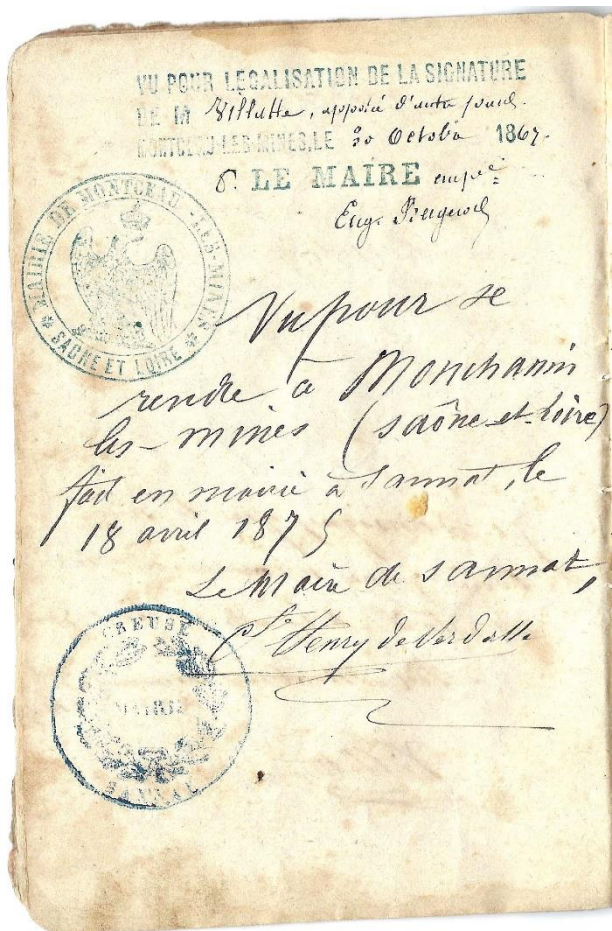 VU POUR LEGALISATION DE LA SIGNATURE
DE M Villatte, apposée d'autre part.
MONTCEAU-LES-MINES, LE 30 Octobre 1867.
LE MAIRE
Eug.
MAIRIE DE MONTCEAU-LES-MINES
SAONE ET LOIRE
Vu pour se
rendre à Monchanin
les-mines (Saône-et-Loire)
fait en mairie à Sannat, le
18 avril 1875
Le Maire de Sannat,
Cte Henry de Verdalle
CREUSE
MAIRIE
SANNAT